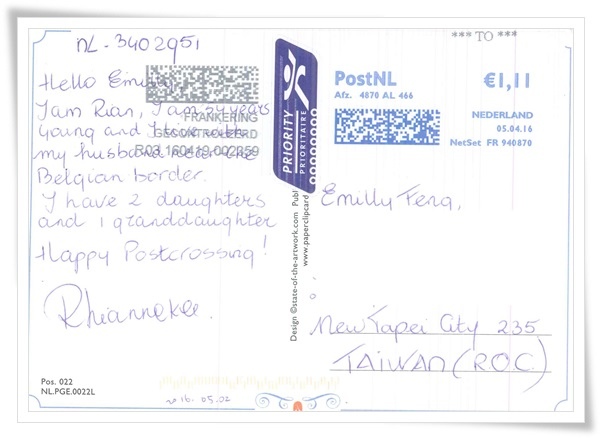 NL-3402951
Hello Emilly,
I am Rian, I am 54 years
young and I live with
my husband near the
Belgian border.
I have 2 daughters
and 1 granddaughter
Happy Postcrossing!
Rhianneke.
FRANKERING
GECONTROLEERD
R03 160419 002359
Pos. 022
NL.PGE.0022L
2016. 05.02
Design ©state-of-the-artwork.com Publ
www.paperclipcard
PRIORITY
PRIORITAIRE
*** TO ***
PostNL
€1,11
Afz. 4870 AL 466
NEDERLAND
05.04.16
NetSet FR 940870
Emilly Feng,
New Taipei City 235
TAIWAN (R.O.C.)